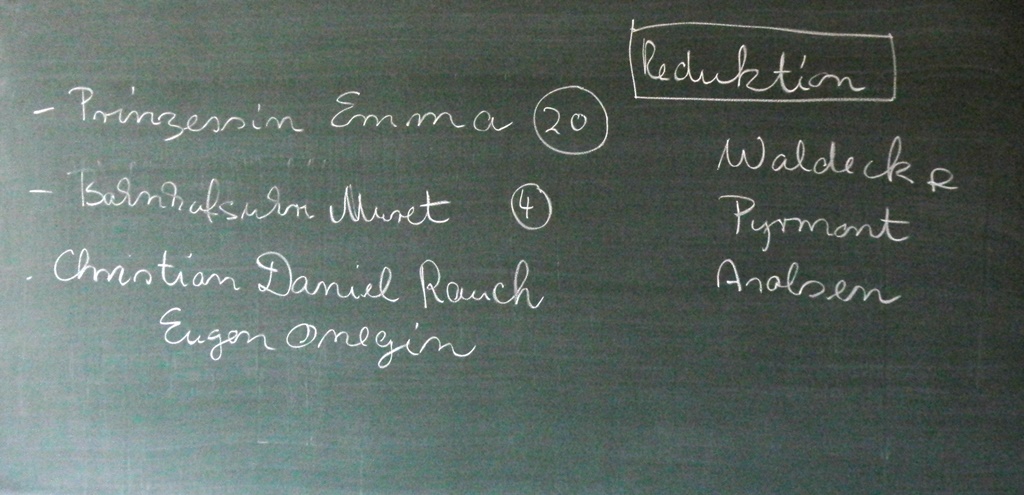 Reduktion
- Prinzessin Emma 20
- Bahnhofsuhr Muret 4
. Christian Daniel Rauch
Eugen Onegin
Waldeck &
Pyrmont
Arolsen